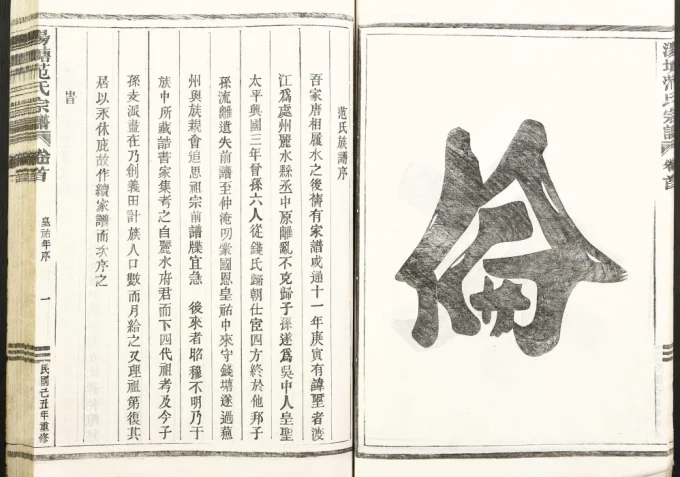 倫
范氏族譜序
吾家唐相履水之後舊有家譜咸通十一年庚寅有諱墅者渡
江爲處州麗水縣丞中原離亂不克歸子孫遂爲吳中人皇聖
太平興國三年曾孫六人從錢氏歸朝仕宦四方終於他邦子
孫流離遺失前譜至仲淹叨蒙國恩皇祐中來守錢塘遂過蘇
州與族親會追思祖宗前譜牒宜急 後來者昭穆不明乃于
族中所藏誥書家集考之自麗水府君而下四代祖考及今子
孫支派盡在乃創義田計族人口數而月給之又理祖第復其
居以永休庇故作續家譜而次序之
旹
范氏宗譜
卷首
皇祐年序
一
民國己丑年重修
氏宗譜
卷首